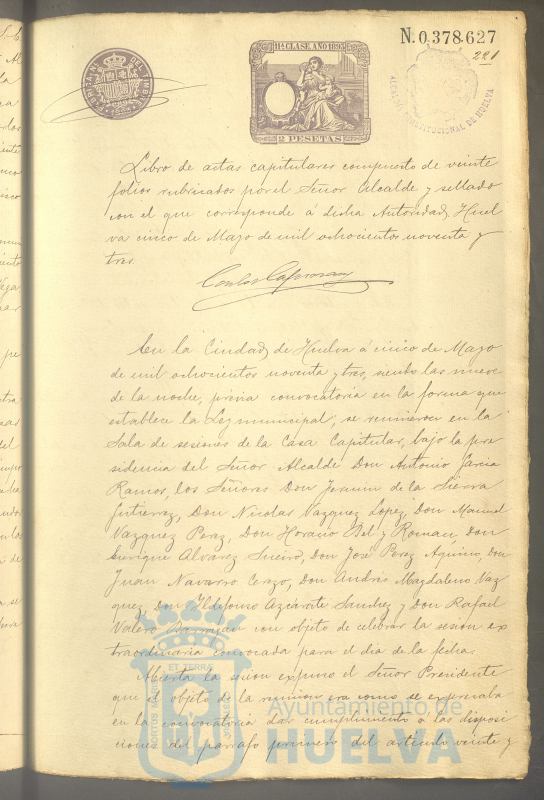 N.0.378.627
221
11ª CLASE AÑO 1893
2 PESETAS
DEL TIMBRE
ALCALDIA CONSTITUCIONAL DE HUELVA
Libro de actas capitulares compuesto de veinte
folios rubricados por el Señor Alcalde y sellado
con el que corresponde á dicha Autoridad, Huel
va cinco de Mayo de mil ochocientos noventa y
tres.
En la Ciudad, de Huelva á cinco de Mayo
de mil ochocientos noventa y tres, siendo las nueve
de la noche, prévia convocatoria en la forma que
establece la Ley municipal, se reunieron en la
Sala de sesiones de la Casa Capitular, bajo la pre
sidencia del Señor Alcalde Don Antonio Garcia
Ramos, los Señores Don Joaquin de la Sierra
Gutierrez, Don Nicolas Vazquez Lopez, Don Manuel
Vazquez Perez, Don Horacio Bel y Roman, Don
Enrique Alvarez Sueiro, Don José Perez Aquino Don
Juan Navarro Cerzo, Don Andrés Magdaleno Vaz
quez, Don Ildefonso Azcárate Sanchez y Don Rafael
Valero con objeto de celebrar la sesion ex
traordinaria convocada para el dia de la fecha.
Abierta la sesion expuso el Señor Presidente
que el objeto de la reunion era como se expresaba
en la convocatoria dar cumplimiento a las disposi
ciones del párrafo primero del artículo veinte y
ET TERRÆ
Ayuntamiento de
HUELVA